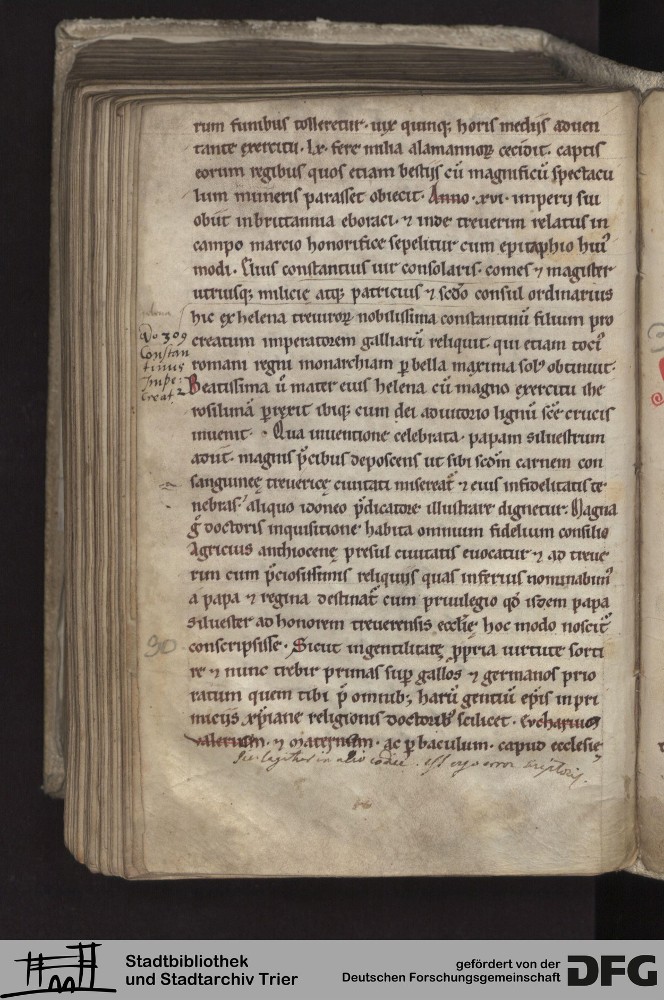 rum funibus tolleretur. uix quinq; horis medijs aduen
tante exercitu. Lx. fere milia alamannorꝝ cecidit. captis
eorum regibus quos etiam bestijs cū magnificū spectacu
lum muneris parasset obiecit. Anno .xvi. imperij sui
obijt in brittannia eboraci. ⁊ inde treuerim relatus in
campo marcio honorifice sepelitur cum epitaphio huiꝰ
modi. Cuius constantius uir consolaris. comes ⁊ magister
utriusq; milicię atq; patricius ⁊ sed̄o consul ordinarius
hic ex helena treuirorꝝ nobilissima constantinū filium pro
creatum imperatorem galliarū reliquit. qui etiam tociꝰ
romani regni monarchiam ꝑ bella maxima solꝰ obtinuit.
Beatissima ū mater eius helena cū magno exercitu ihe
rosilimā ꝑrexit ibiq; cum dei adiutorio lignū scē crucis
inuenit. Qua inuentione celebrata. papam siluestrum
adiit. magnis p̄cibus deposcens ut sibi secdm̄ carnem con
sanguineę treuericę ciuitati misereat̄ ⁊ eius infidelitatis te
nebras aliquo idoneo p̄dicatore illustrare dignetur. Magna
g̊ doctoris inquisitione habita omnium fidelium consilio
Agricius anthiocenę presul ciuitatis euocatur ⁊ ad treue
rim cum p̄ciosissimis reliquijs quas inferius nominabimꝰ
a papa ⁊ regina destinat̄ cum priuilegio qd̄ isdem papa
siluester ad honorem treuerensis ecclię hoc modo noscit̄
conscripsisse. Sicut in gentilitate ꝓpria uirtute sorti
re ⁊ nunc trebir primas suꝑ gallos ⁊ germanos prio
ratum quem tibi p̄ omnib; harū gentiū epīs in pri
micijs xp̄iane religionis doctoribꝰ scilicet. Eucharium
valerium. ⁊ Maternum. ac ꝑ baculum. capud ecclesię
sic legitur in alio codice. est ergo error scriptoris.
Ao 309
Constan
tinus
Impe:
creat.
30
Stadtbibliothek
und Stadtarchiv Trier
gefördert von der
Deutschen Forschungsgemeinschaft
DFG